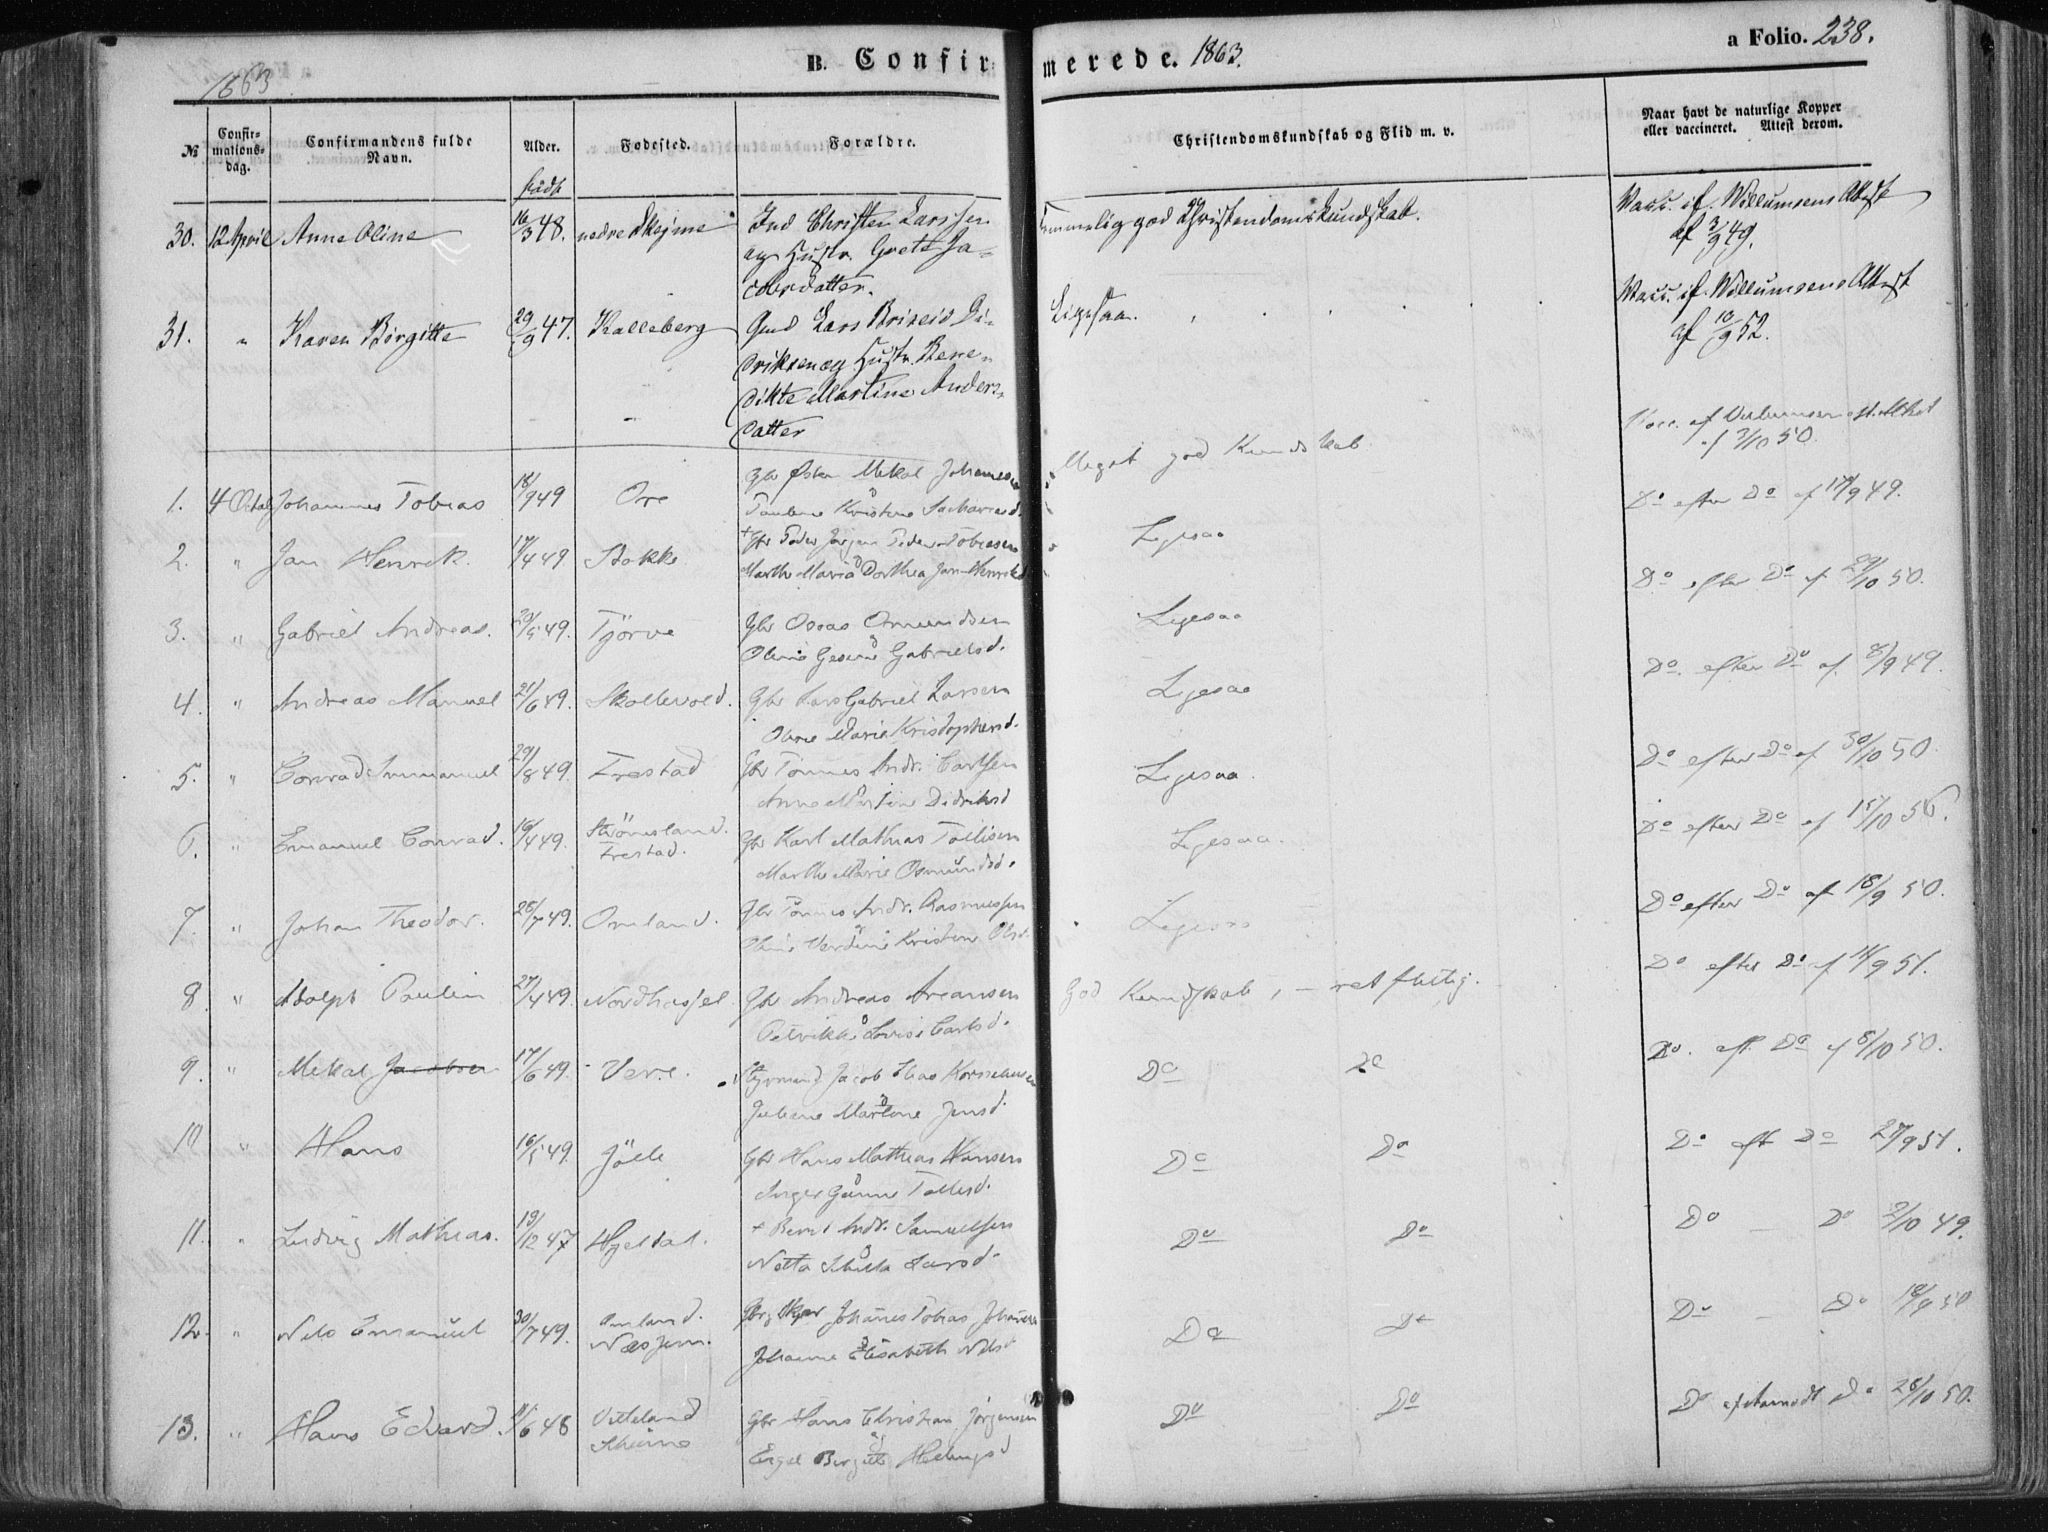 1863
B. Confirmerede. 1863.
a Folio. 238.
№
Confirmationsdag.
Confirmandens fulde Navn.
Alder.
Fødested.
Forældre.
Christendomskundskab og Flid m. v.
Naar havt de naturlige Kopper eller vaccineret. Attest derom.
født
30. 12 April Anne Oline 16/3 48. nedre Skejme Ind Christen Larssen temmelig god Christendomskundskab. Vacc. if. Willumsens Attest
og Hustr. Grete Ja- af 3/9 49.
cobsdatter.
31. " Karen Birgitte 29/9 47. Kalleberg Gmd Lars Briseid Di- Ligesaa. Vacc. if. Willumsens Attest
driksen og Hustr. Bene- af 10/9 52.
dikte Martine Anders-
datter
1. 4 Octob Johannes Tobias 18/9 49 Ore Gbr Østen Mekal Johannesen Meget god Kundskab Vacc. af Attest
Pauline Kristine Sachariasd. af 7/10 50.
2. " Jan Henrik. 17/4 49 Stokke Peder Jørgen Tobiasen Ligesaa Do efter Do af 17/9 49.
Marthe Maria Dorthea Jan Henriksd
3. " Gabriel Andreas. 23/5 49. Tjörve Gbr Osvas Omundsen Ligesaa Do efter Do af 29/10 50.
Oline Gesine Gabrielsd.
4. " Andreas Manuel 21/6 49. Skollevold. Gbr Lars Gabriel Larsen Ligesaa Do. efter Do af 8/9 49.
Olene Marie Kristophersd.
5. " Conrad Immanuel 29/8 49. Frestad Gbr Tønnes Andr. Carlsen Ligesaa. Do efter Do af 30/10 50
Anne Martine Didriksd
6. " Emanuel Conrad. 16/4 49. Strömsland. Gbr Karl Mathias Tollisen Ligesaa. Do efter Do af 15/10 50.
Frestad. Marthe Marie Osmundsd.
7. " Johan Theodor. 26/7 49. Omland. Gbr Tønnes Andr. Rasmussen Ligesaa Do efter Do af 18/9 50.
Kristine Olsd.
8 " Adolph Paulin 27/4 49. Nordhassel Gbr Andreas Areansen God Kundskab, - ret flittig. Do efter Do af 14/9 51.
Petrikke Lovise Carlsd.
9. " Mekal Jacobsen 17/6 49. Vere. Styrmand Jacob Elias Korneliusen Do Do Do. eft. Do af 8/10 50.
Juliane Martine Jensd.
10 " Hans 16/5 49. Jölle Gbr Hans Mathias Hansen Do Do Do eft Do 27/9 51.
Inger Gunne Tollisd.
11. " Ludvig Mathias. 19/12 47 Hjeldal. + Bernt Andr. Samuelsen Do Do Do - Do 2/10 49.
Netta Sibilla Larsd.
12. " Nils Emanuel 30/7 49. Omland. Johannes Tobias Johannesen Do Do Do - Do 18/9 50
Næsjem. Johanne Elisabeth Nilsd
13. " Hans Edvard. 11/6 48 Vitteland Gbr Hans Christian Jørgensen Do Do Do Do 28/10 50.
Skeime Engel Birgitte Hedvigsd